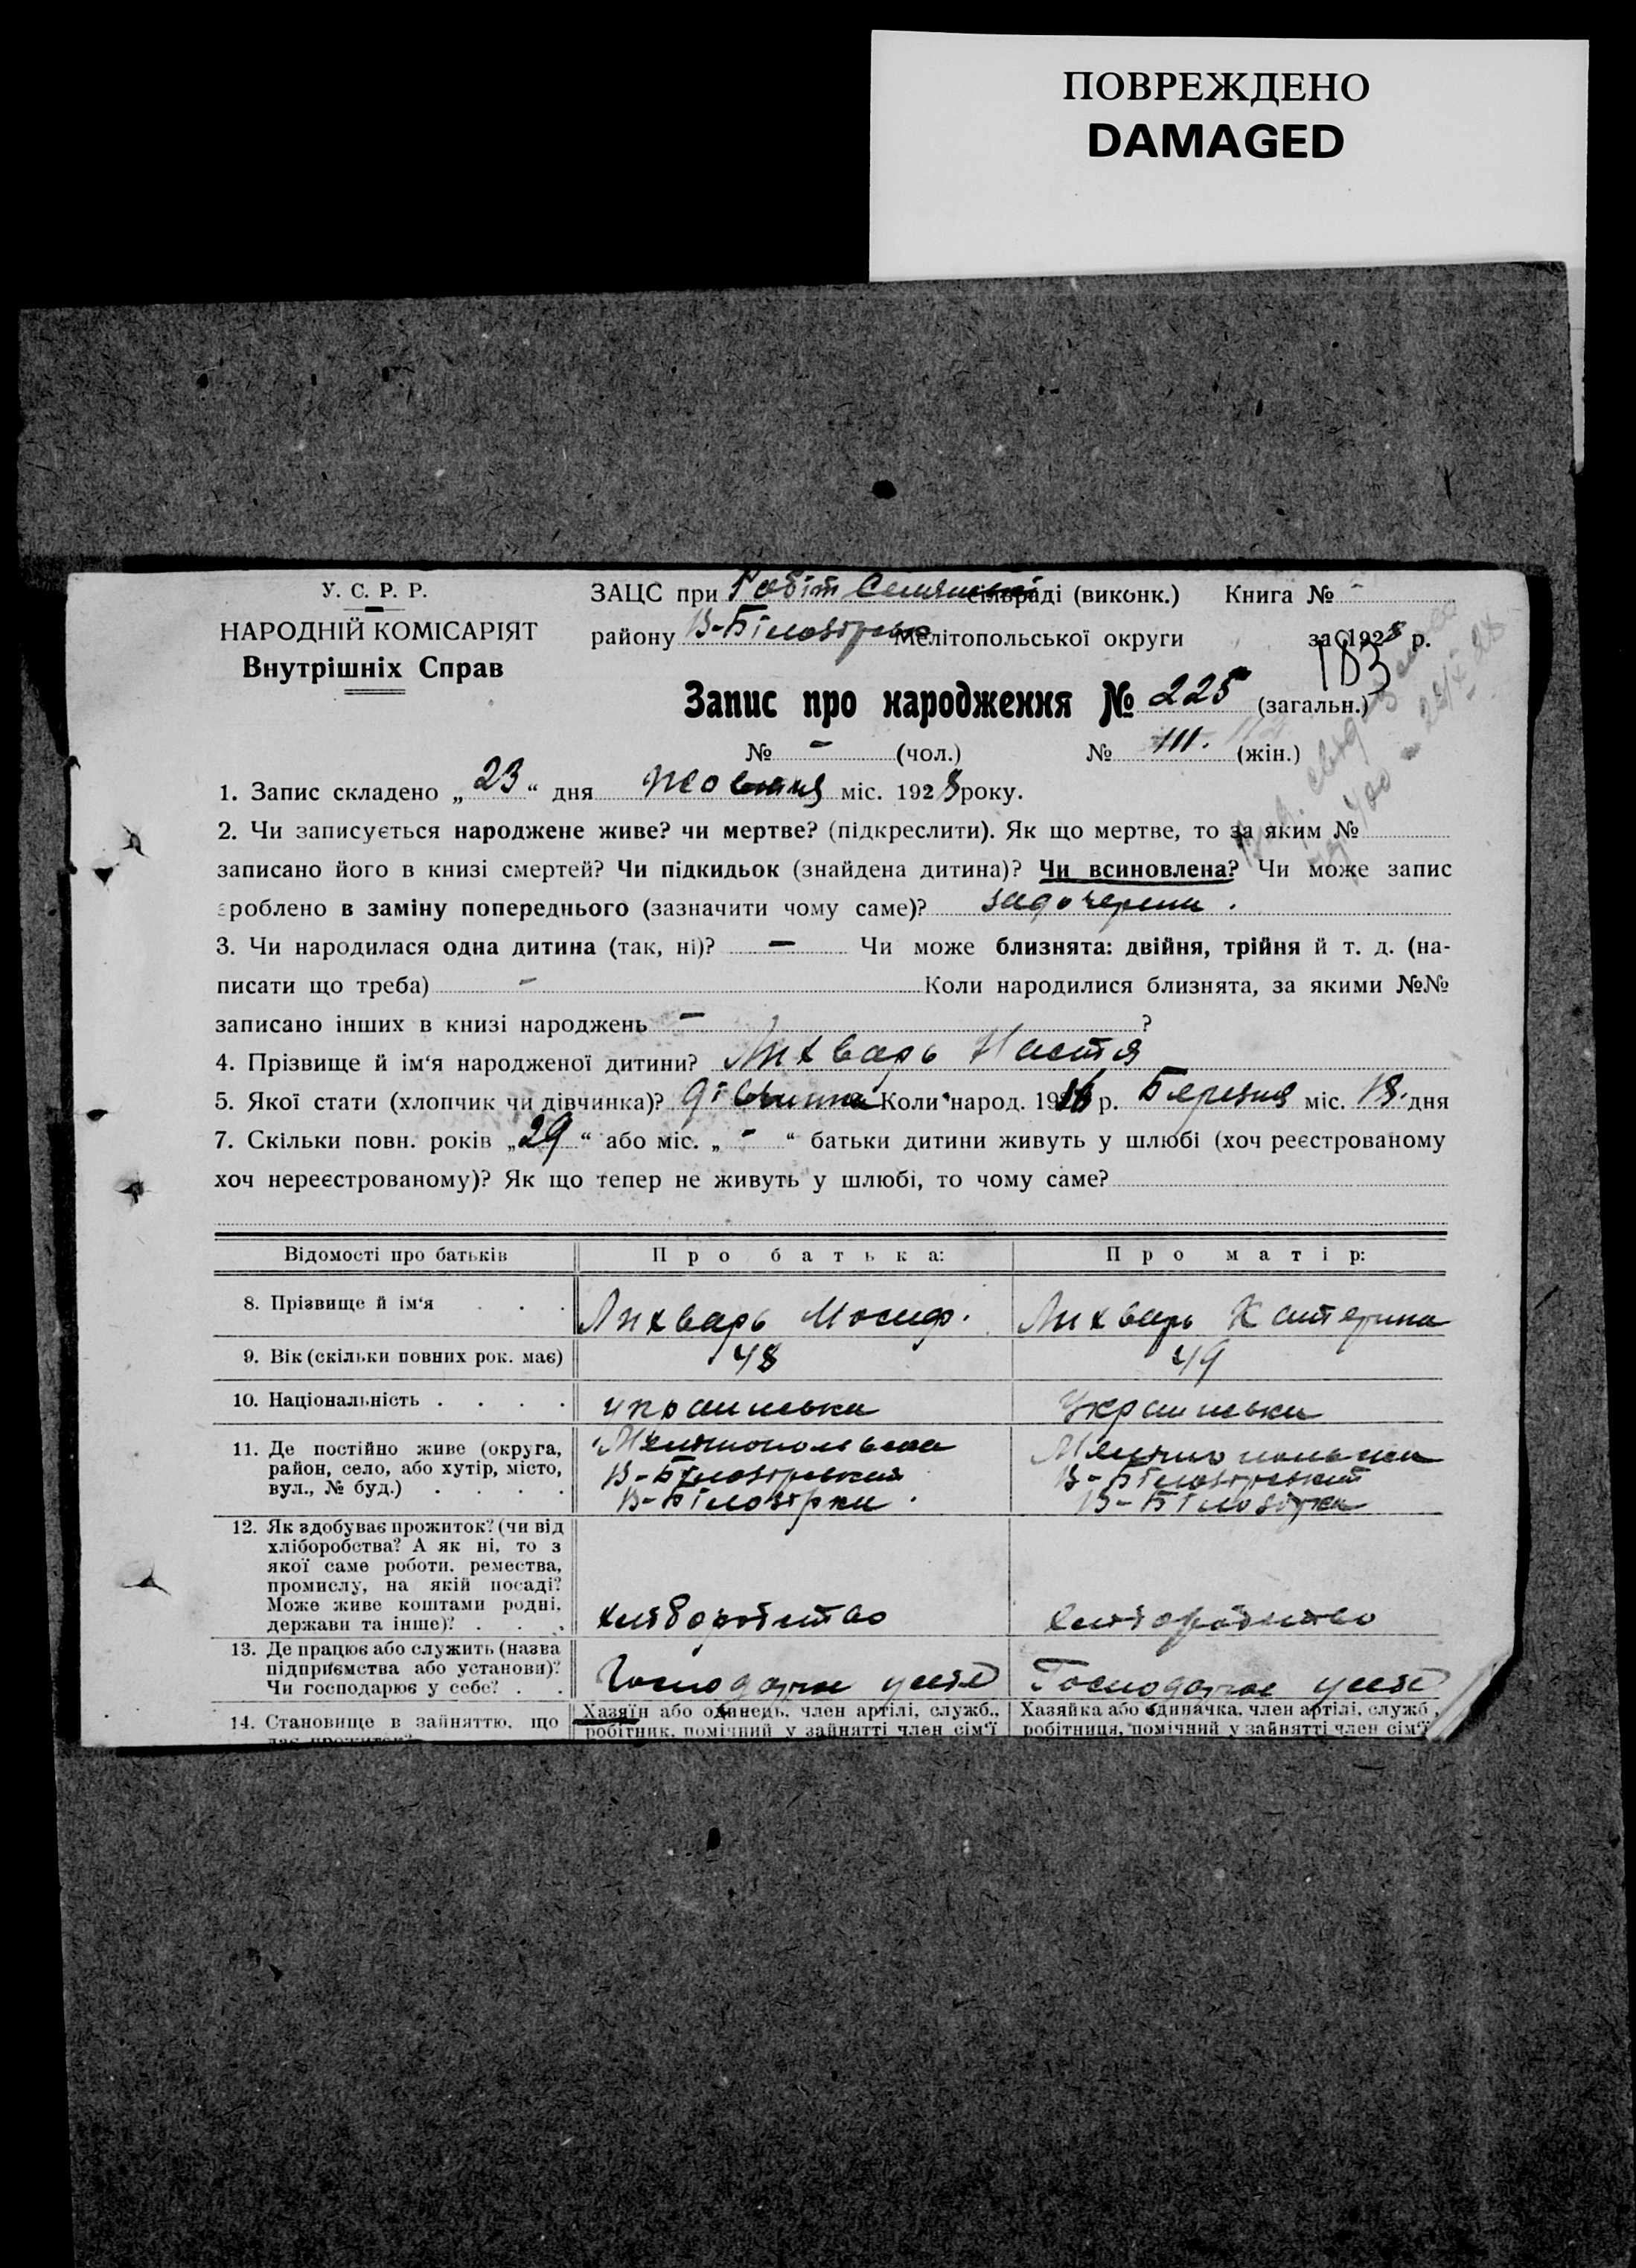 ПОВРЕЖДЕНО
DAMAGED
У. С. Р. Р.
НАРОДНІЙ КОМІСАРІЯТ
Внутрішніх Справ
ЗАЦС при Робіт Селянській сільраді (виконк.) Книга № -
району В-Білозірськ Мелітопольської округи за 1928 р.
183
Запис про народження № 225 (загальн.)
№ - (чол.) № 111. (жін.)
1. Запис складено „23“ дня Жовтня міс. 1928 року.
2. Чи записується народжене живе? чи мертве? (підкреслити). Як що мертве, то за яким №
записано його в книзі смертей? Чи підкидьок (знайдена дитина)? Чи всиновлена? Чи може запис
зроблено в заміну попереднього (зазначити чому саме)? задочерени.
3. Чи народилася одна дитина (так, ні)? — Чи може близнята: двійня, трійня й т. д. (на-
писати що треба) - Коли народилися близнята, за якими №№
записано інших в книзі народжень — ?
4. Прізвище й ім‘я народженої дитини? Лихварь Настя
5. Якої стати (хлопчик чи дівчинка)? дівчинка Коли народ. 1916 р. Березня міс. 18. дня
7. Скільки повн. років „29“ або міс. „-“ батьки дитини живуть у шлюбі (хоч реєстрованому
хоч нереєстрованому)? Як що тепер не живуть у шлюбі, то чому саме?
Відомості про батьків Про батька: Про матір:
8. Прізвище й ім‘я . . . Лихварь Иосиф. Лихварь Катерина
9. Вік (скільки повних рок. має) 48 49
10. Національність . . . . украинська Украинська
11. Де постійно живе (округа,
район, село, або хутір, місто,
вул., № буд.) . . . .
Мелитопольська
В-Білозірський
В-Білозірки.
Мелитопольська
В-Білозірський
В-Білозірка
12. Як здобуває прожиток? (чи від
хліборобства? А як ні, то з
якої саме роботи, ремества,
промислу, на якій посаді?
Може живе коштами родні,
держави та інше)? . . .
хлиборобство хлиборобство
13. Де працює або служить (назва
підприємства або установи)?
Чи господарює у себе? . .
Господарює у себе Господарює у себе
14. Становище в зайняттю, що
дає прожиток?
Хазяїн або одинець, член артілі, служб.,
робітник, помічний у зайнятті член сім‘ї
Хазяйка або одиначка, член артілі, служб.,
робітниця, помічний у зайнятті член сім‘ї